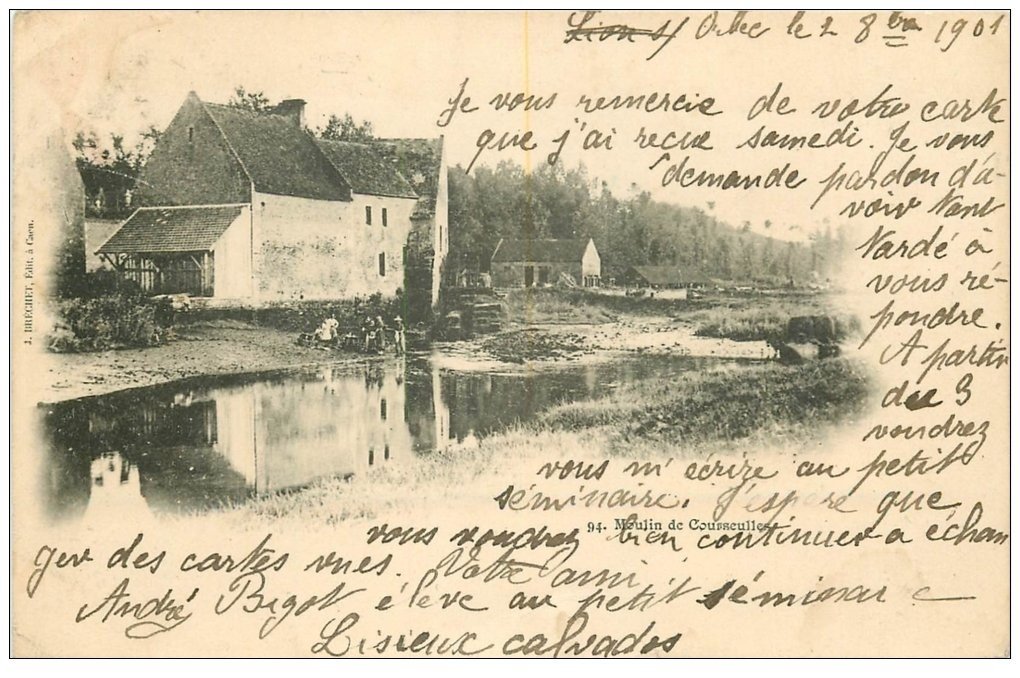 Lion s/ Orbec le 2 8bre 1901
Je vous remercie de votre carte
que j'ai recue samedi. Je vous
demande pardon d'a-
voir tant
tardé à
vous ré-
pondre.
A partir
du 3
voudrez
vous m'écrire au petit
séminaire. J'espère que
94. Moulin de Courseulles
vous voudrez bien continuer a échan
ger des cartes vues. Votre ami
André Bigot élève au petit séminaire
Lisieux calvados
J. BRÉCHET, Édit. à Caen.